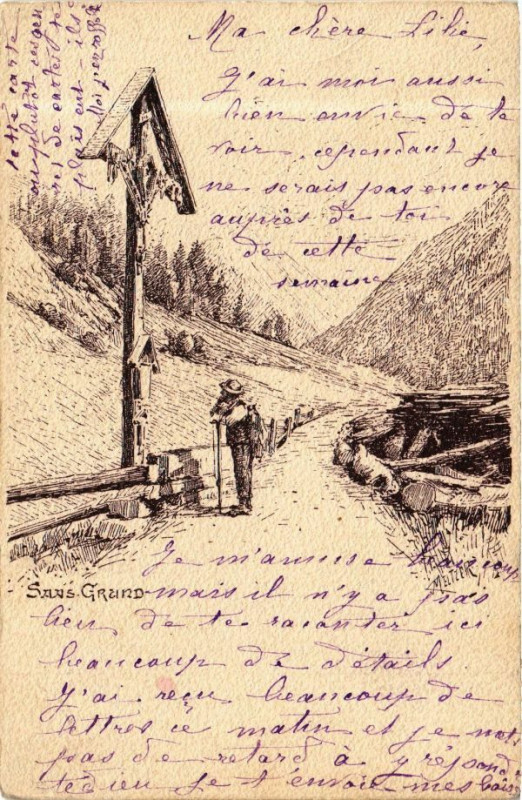 Ma chère Lilie,
J'ai moi aussi
bien envie de te
voir, cependant je
ne serais pas encore
auprès de toi
de cette
semaine
Je m'amuse beaucoup
mais il n'y a pas
lieu de te raconter ici
beaucoup de détails.
J'ai reçu beaucoup de
lettres ce matin et je mets
pas de retard à y répond
je t'envoie mes bais
SANS-GRUND-
cette carte
ou plutôt
de cartes te
plaisent-ils